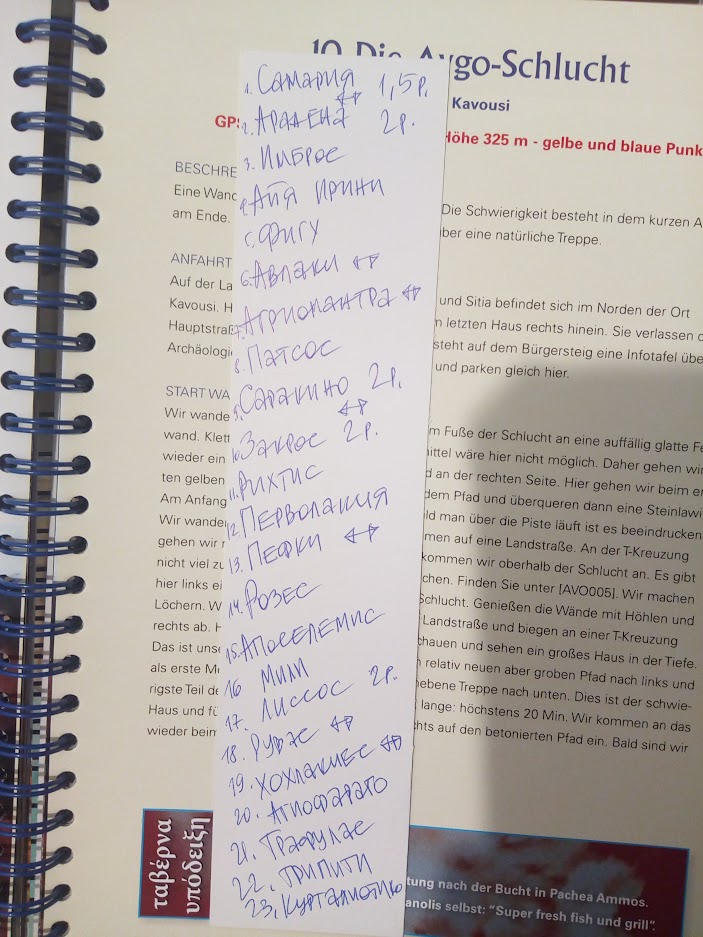 10 Die Avgo-Schlucht
Kavousi
GPS
Höhe 325 m - gelbe und blaue Punk
BESCHRE
Eine Wand
Die Schwierigkeit besteht in dem kurzen A
am Ende.
ber eine natürliche Treppe.
ANFAHRT
Auf der La
und Sitia befindet sich im Norden der Ort
Kavousi. H
m letzten Haus rechts hinein. Sie verlassen d
Hauptstraß
steht auf dem Bürgersteig eine Infotafel übe
Archäologi
und parken gleich hier.
START WA
Wir wande
m Fuße der Schlucht an eine auffällig glatte Fe
wand. Klett
ittel wäre hier nicht möglich. Daher gehen wir
wieder ein
d an der rechten Seite. Hier gehen wir beim er
ten gelben
dem Pfad und überqueren dann eine Steinlawi
Am Anfang
ld man über die Piste läuft ist es beeindrucken
Wir wande
men auf eine Landstraße. An der T-Kreuzung
gehen wir r
kommen wir oberhalb der Schlucht an. Es gibt
nicht viel zu
chen. Finden Sie unter [AVO005]. Wir machen
hier links ei
Schlucht. Genießen die Wände mit Höhlen und
Löchern. W
Landstraße und biegen an einer T-Kreuzung
rechts ab. H
chauen und sehen ein großes Haus in der Tiefe.
Das ist unse
n relativ neuen aber groben Pfad nach links und
als erste Me
ebene Treppe nach unten. Dies ist der schwie-
rigste Teil de
lange: höchstens 20 Min. Wir kommen an das
Haus und fü
hts auf den betonierten Pfad ein. Bald sind wir
wieder beim
1. Самария 1,5р.
2. Арадена ↔ 2р.
3. Имброс
4. Айя Ирини
5. Фигу
6. Авлаки ↔
7. Агриомантра ↔
8. Патсос
9. Саракино 2р.
10. Закрос ↔ 2р.
11. Рихтис
12. Перволакия
13. Пефки ↔
14. Розес
15. Апоселемис
16 Мили
17. Лиссос 2р.
18. Рувас ↔
19. Хохлакиес ↔
20. Агиофараго
21. Трафулас
22. Трипити
23. Курталиотико
ταβέρνα
υπόδειξη
tung nach der Bucht in Pachea Ammos.
anolis selbst: "Super fresh fish und grill".